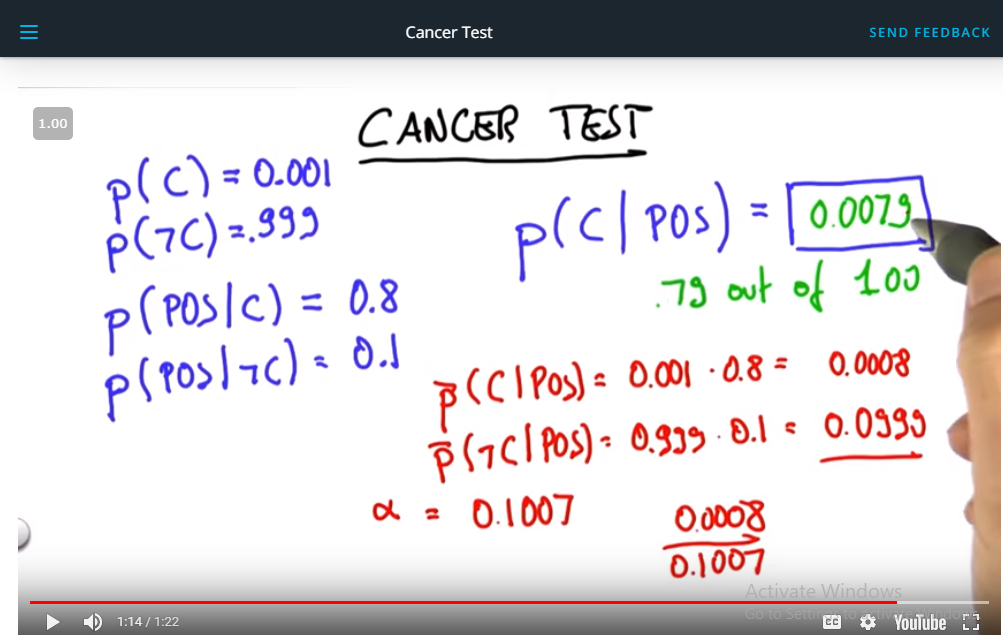 Cancer Test
SEND FEEDBACK
1.00
CANCER TEST
p(C) = 0.001
p(¬C) = .999
p(POS|C) = 0.8
p(POS|¬C) = 0.1
p(C|POS) = 0.0079
.79 out of 100
p̄(C|POS) = 0.001 · 0.8 = 0.0008
p̄(¬C|POS) = 0.999 · 0.1 = 0.0999
α = 0.1007
0.0008
0.1007
Activate Windows
Go to Settings to activate Windows.
1:14 / 1:22
CC
YouTube